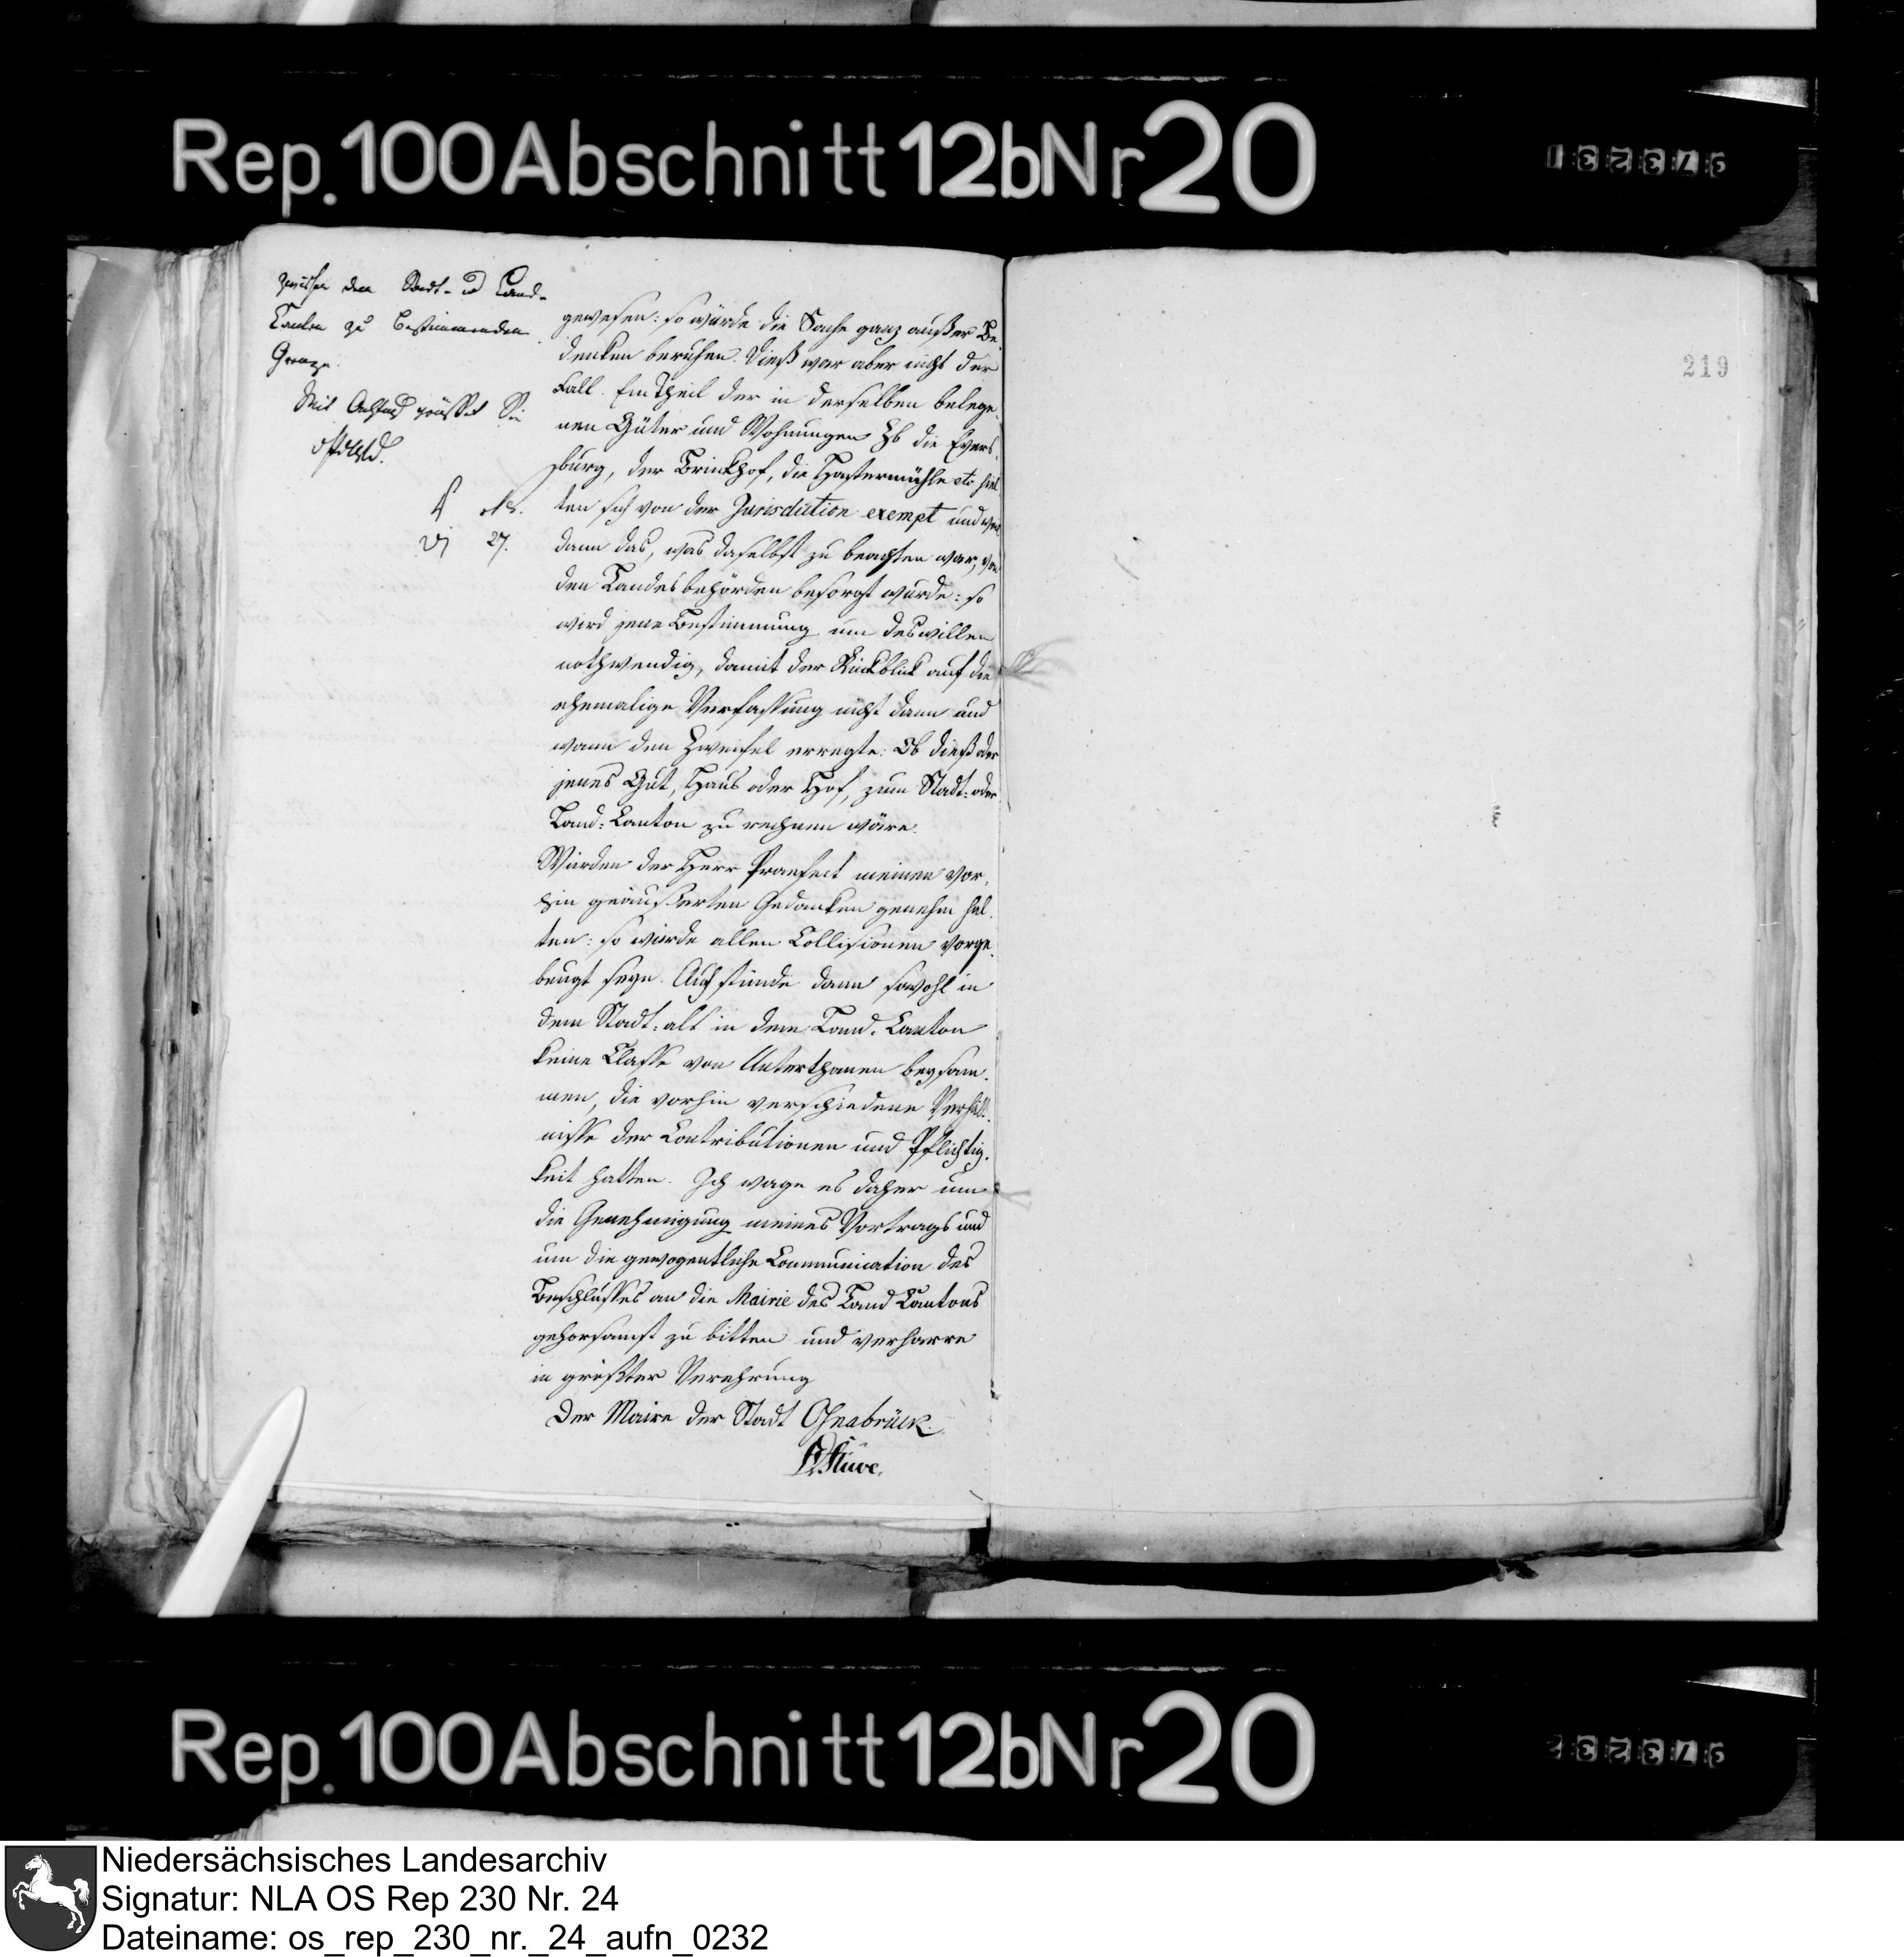 Rep. 100 Abschnitt 12b Nr 20
zwischen dem Stadt- u Land-
Canton zu bestimmenden
Grenze.
Mit Achtung grüßet Sie
27.
gewesen: so würde die Sache ganz außer Be-
denken beruhen. Dieß war aber nicht der
Fall. Ein Theil der in derselben belege-
nen Güter und Wohnungen Zb die Evers-
burg, der Brinkhof, die Hastermühle etc hiel
ten sich von der Jurisdiction exempt und weil
dann das, was daselbst zu beachten war, von
den Landesbehörden besorgt wurde: so
wird jene Bestimmung um deswillen
nothwendig, damit der Rückblick auf die
ehemalige Verfassung nicht dann und
wann den Zweifel erregte: Ob dieß oder
jenes Gut, Haus oder Hof, zum Stadt- oder
Land-Canton zu rechnen wäre.
Würden der Herr Praefect meinen vor-
hin geäußerten Gedanken genehm hal-
ten: so würde allen Collisionen vorge-
beugt seyn. Auch stünde dann sowohl in
dem Stadt- als in dem Land-Canton
keine Classe von Unterthanen beysam-
men, die vorhin verschiedene Verhält-
nisse der Contributionen und Pflichtig-
keit hatten. Ich wage es daher um
die Genehmigung meines Vortrags und
um die gewogentliche Communication des
Beschlusses an die Mairie des Land Cantons
gehorsamst zu bitten und verharre
in größter Verehrung
Der Maire der Stadt Osnabrück.
Stüve.
219
Rep. 100 Abschnitt 12b Nr 20
Niedersächsisches Landesarchiv
Signatur: NLA OS Rep 230 Nr. 24
Dateiname: os_rep_230_nr._24_aufn_0232